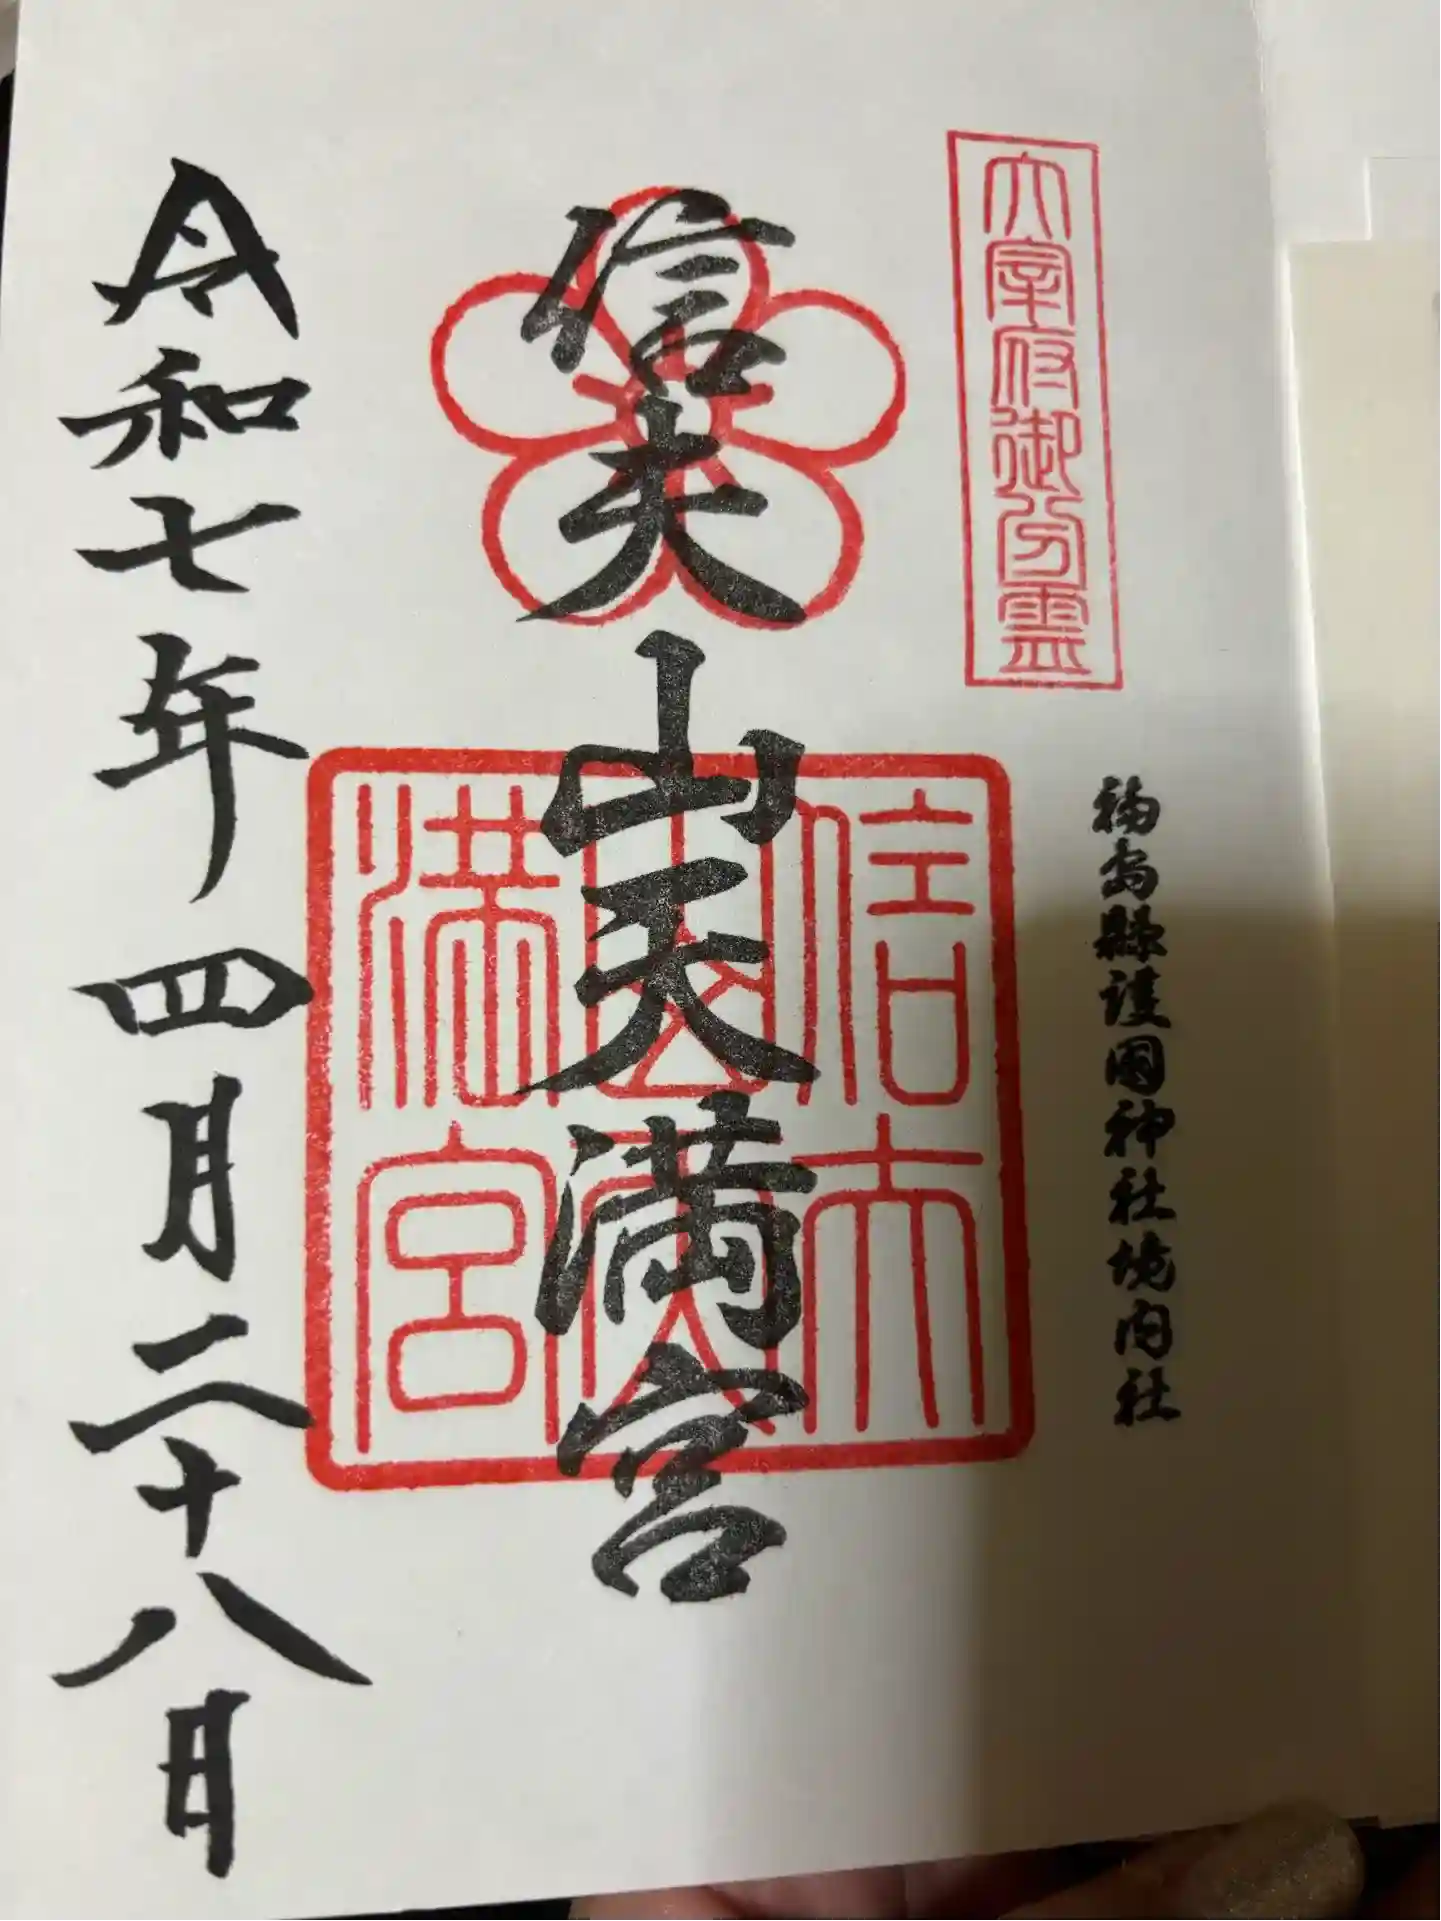 大宰府御分霊
福島縣護國神社境内社
信夫山天満宮
信夫山天満宮
令和七年四月二十八日